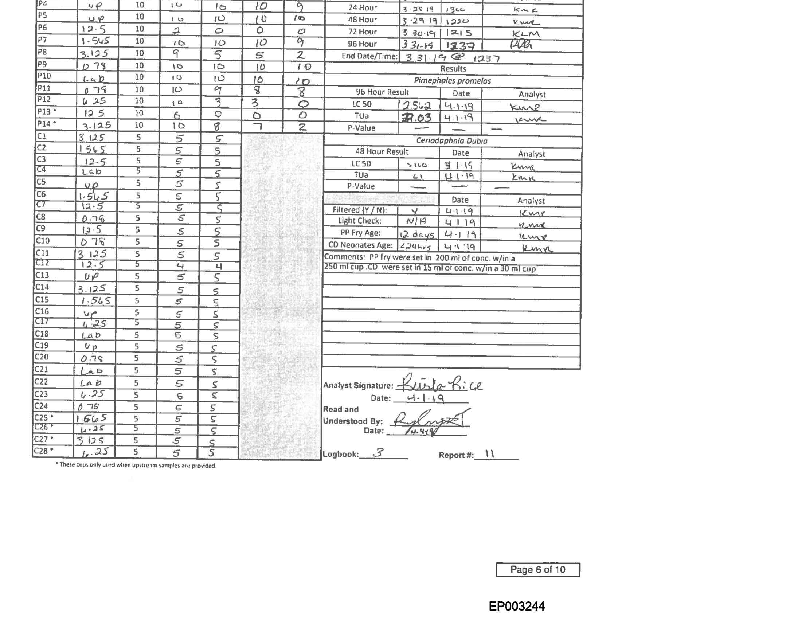 P4 UP 10 10 10 10 9
P5 UP 10 10 10 10 10
P6 12.5 10 2 0 0 0
P7 1.565 10 10 10 10 9
P8 3.125 10 9 5 5 2
P9 0.78 10 10 10 10 10
P10 Lab 10 10 10 10 10
P11 0.78 10 10 9 8 8
P12 6.25 10 10 3 3 0
P13 * 12.5 10 6 0 0 0
P14 * 3.125 10 10 8 7 2
C1 3.125 5 5 5
C2 1.565 5 5 5
C3 12.5 5 5 5
C4 Lab 5 5 5
C5 UP 5 5 5
C6 1.565 5 5 5
C7 12.5 5 5 5
C8 0.78 5 5 5
C9 12.5 5 5 5
C10 0.78 5 5 5
C11 3.125 5 5 5
C12 12.5 5 4 4
C13 UP 5 5 5
C14 3.125 5 5 5
C15 1.565 5 5 5
C16 UP 5 5 5
C17 6.25 5 5 5
C18 Lab 5 5 5
C19 UP 5 5 5
C20 0.78 5 5 5
C21 Lab 5 5 5
C22 Lab 5 5 5
C23 6.25 5 5 5
C24 0.78 5 5 5
C25 * 1.565 5 5 5
C26 * 6.25 5 5 5
C27 * 3.125 5 5 5
C28 * 6.25 5 5 5
* These cups only used when upstream samples are provided.
24 Hour 3.28.19 1300 KMR
48 Hour 3.29.19 1220 KMR
72 Hour 3.30.19 1215 KLM
96 Hour 3.31.19 1237
End Date/Time: 3.31.19 @ 1237
Results
Pimephales promelas
96 Hour Result Date Analyst
LC 50 2.562 4.1.19 KMR
TUa .03 4.1.19 KMR
P-Value — — —
Ceriodaphnia Dubia
48 Hour Result Date Analyst
LC 50 >100 4.1.19 KMR
TUa <1 4.1.19 KMR
P-Value — — —
Date Analyst
Filtered (Y / N): Y 4.1.19 KMR
Light Check: N/A 4.1.19 KMR
PP Fry Age: 12 days 4.1.19 KMR
CD Neonates Age: <24hrs 4.1.19 KMR
Comments: PP fry were set in 200 ml of conc. w/in a
250 ml cup .CD were set in 15 ml of conc. w/in a 30 ml cup
Analyst Signature: Rice
Date: 4-1-19
Read and
Understood By:
Date:
Logbook: 3 Report #: 11
Page 6 of 10
EP003244